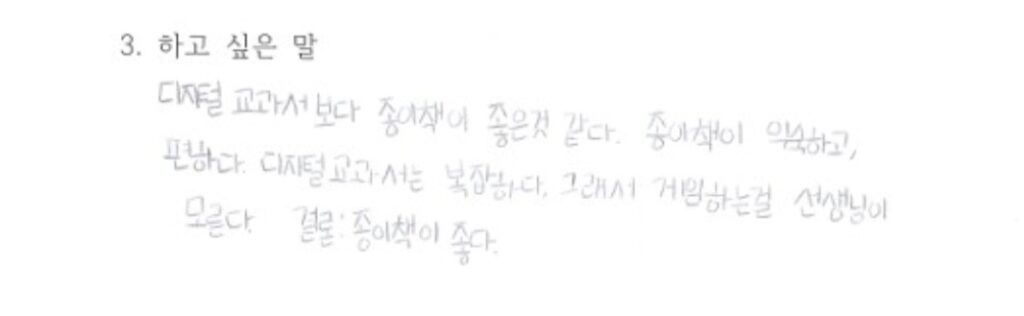 3. 하고 싶은 말
디지털 교과서보다 종이책이 좋은것 같다. 종이책이 익숙하고,
편하다. 디지털교과서는 복잡하다. 그래서 게임하는걸 선생님이
모른다. 결론: 종이책이 좋다.